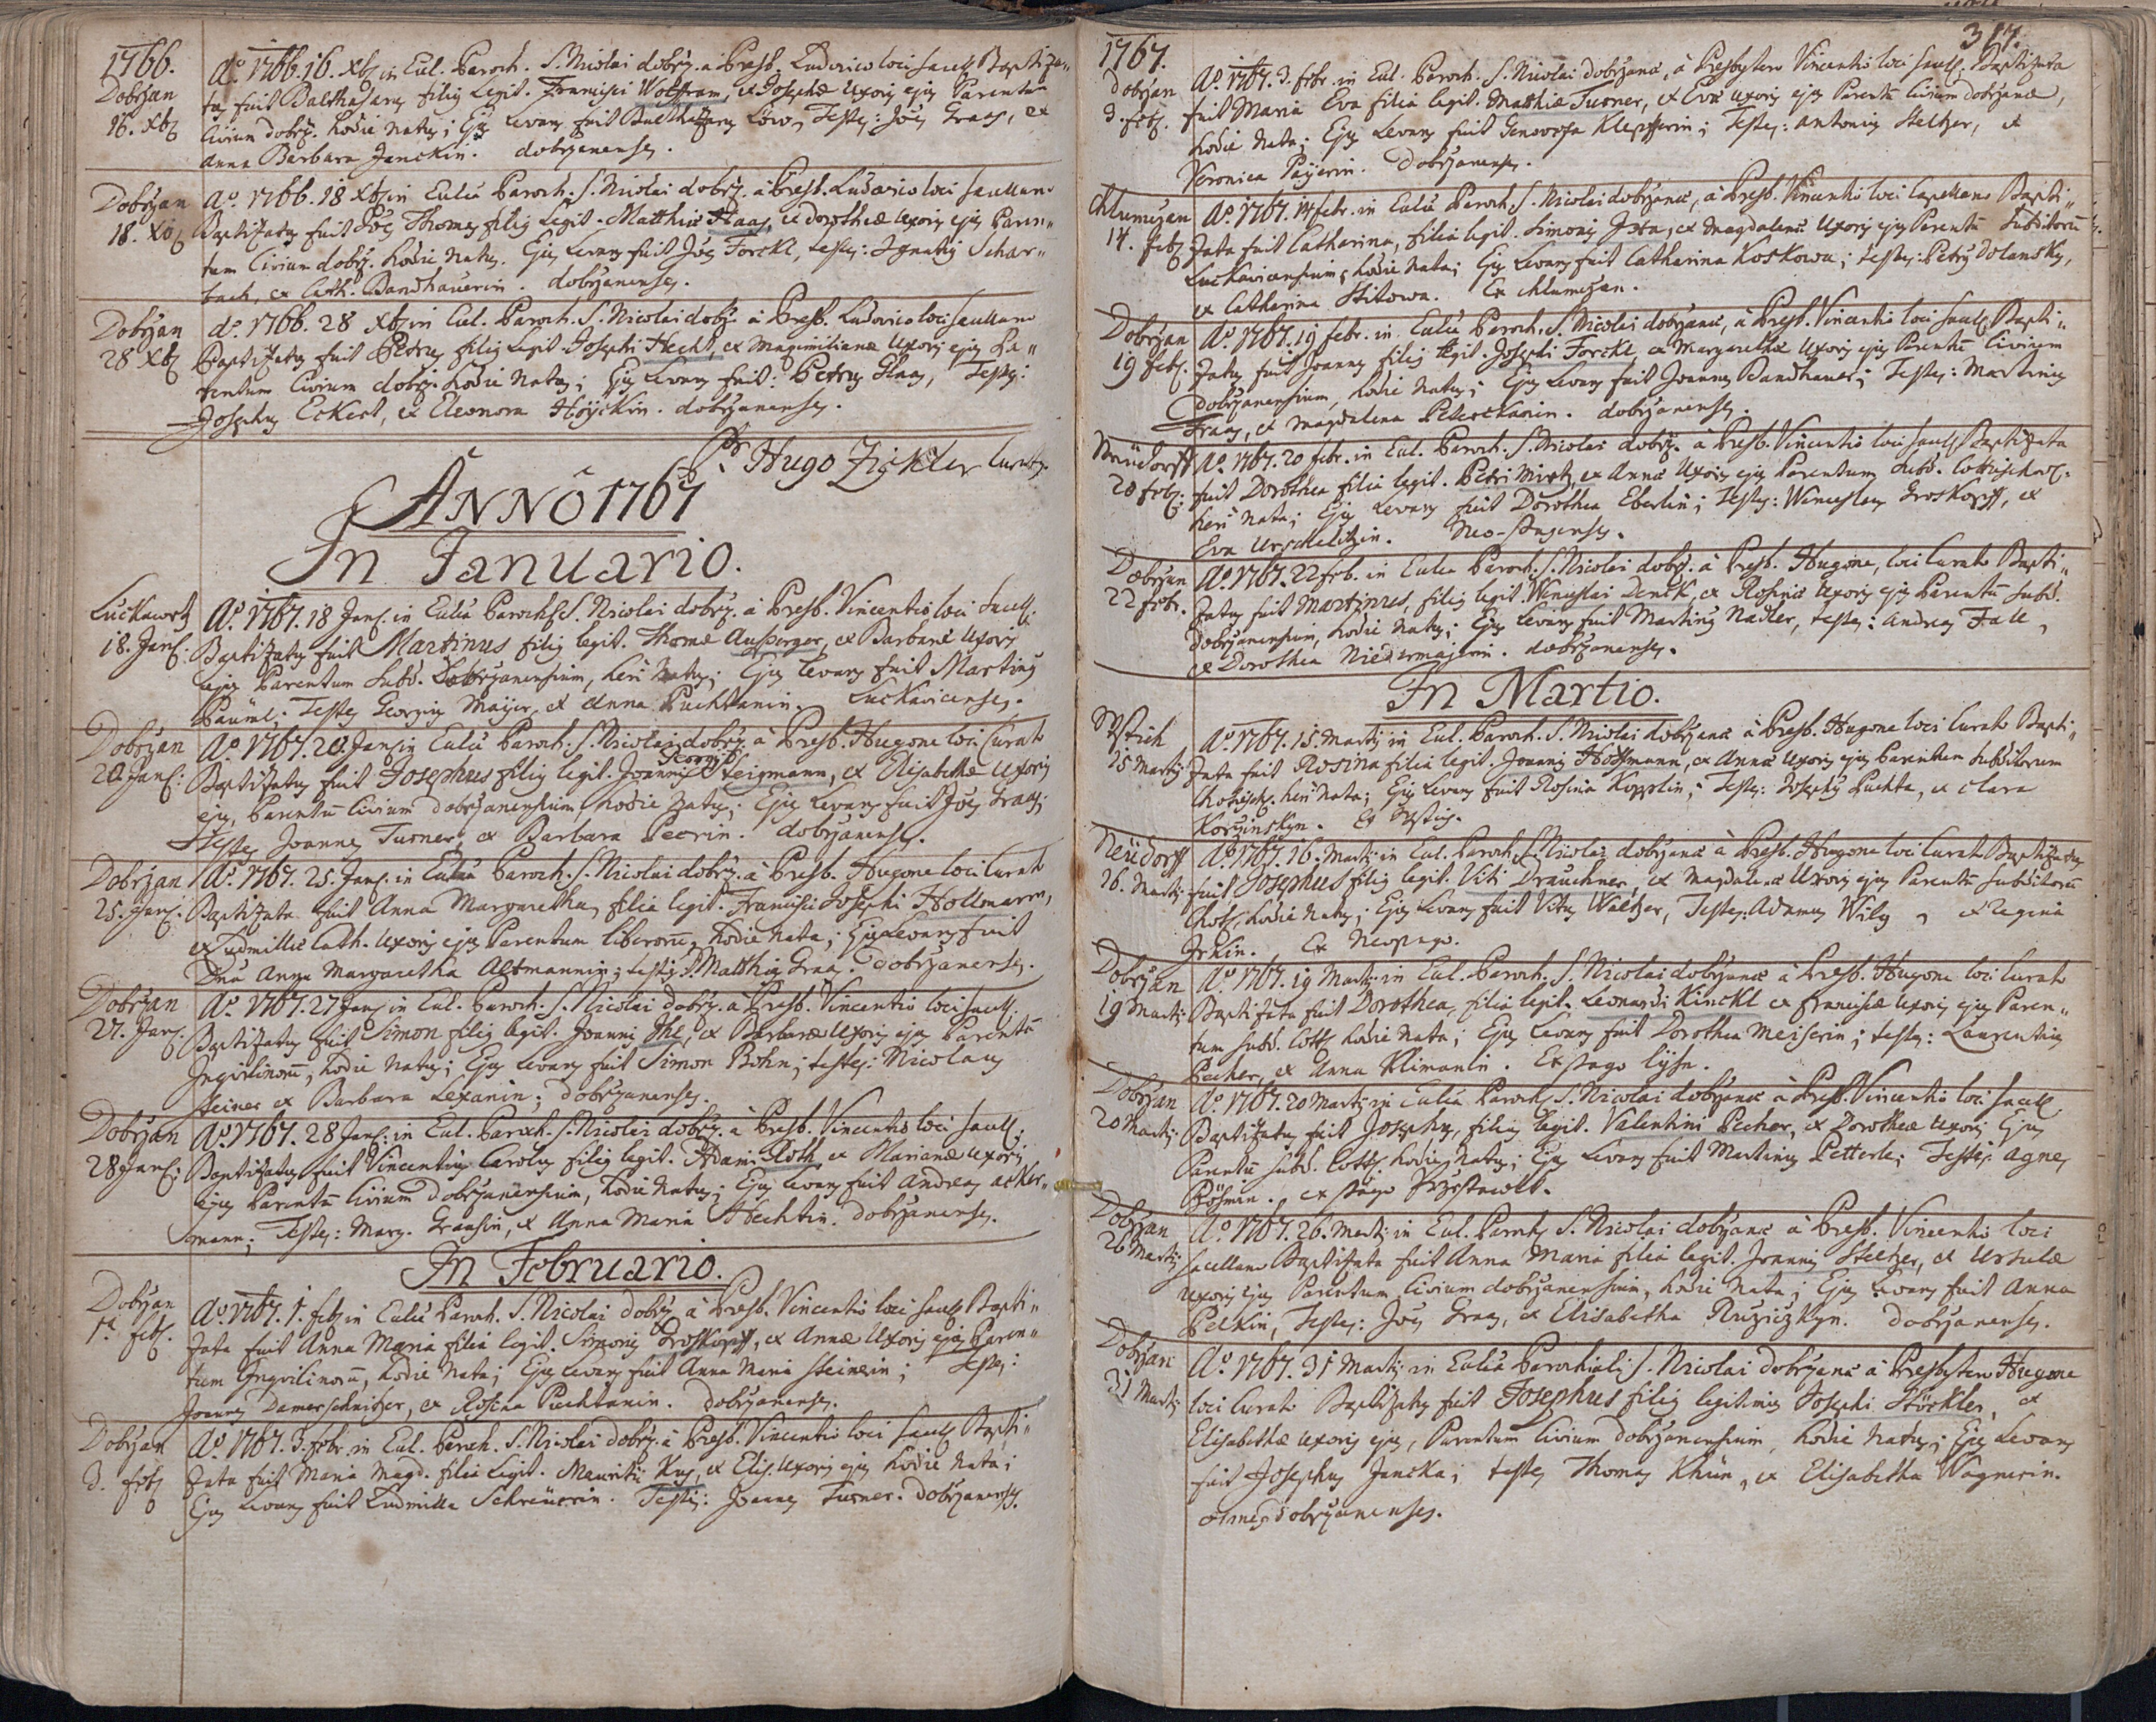 1766.
Dobrzan
16. Xb
A° 1766. 16. Xb in Eccl. Paroch. S. Nicolai dobrz. à Presb. Ludovico loci Sacell. Baptiza„
tus fuit Balthasarus filius legit. Francisci Wolfram, et Josephæ Uxoris ejus Parentum
Civium dobrz. hodie natus; Ejus Levans fuit Balthasarus Löw, Testes: Joēs Graas, et
Anna Barbara Janckin. dobrzanenses.
Dobrzan
18. Xb
A° 1766. 18 Xb in Ecclia Paroch. S. Nicolai dobrz. à Presb. Ludovico loci Sacellano
Baptizatus fuit Joēs Thomas filius legit. Matthiæ Haas, et Dorotheæ Uxoris ejus Paren„
tum Civium dobrz. hodie natus. Ejus Levans fuit Joēs Forckl, testes: Ignatius Schar„
bach, et Cath. Bandhauerin. dobrzanenses.
Dobrzan
28 Xb
A° 1766. 28 Xb in Eccl. Paroch. S. Nicolai dobrz. à Presb. Ludovico loci Sacellano
Baptizatus fuit Petrus filius legit. Josephi Hecht, et Maximilianæ Uxoris ejus Pa„
rentum Civium dobrz. hodie natus; Ejus Levans fuit: Petrus Glaas, Testes:
Josephus Eckert, et Eleonora Höyckin. dobrzanenses.
Pr Hugo Zickler Curatus.
ANNO 1767
In Januario.
Luckawetz
18. Jan:
A° 1767. 18 Jan. in Ecclia Paroch. S. Nicolai dobrz. à Presb. Vincentio loci Sacell.
Baptizatus fuit Martinus filius legit. Thomæ Ausperger, et Barbaræ Uxoris
ejus Parentum subd. Dobrzanensium, heri natus; Ejus Levans fuit Martinus
Bäuml; Testes Georgius Majer, et Anna Puchtanin. Luckavicenses.
Dobrzan
20 Jan:
A° 1767. 20. Jan. in Ecclia Paroch. S. Nicolai dobrz. à Presb. Hugone loci Curato
Georgii
Baptizatus fuit Josephus filius legit. Joannis Feigmann, et Elisabethæ Uxoris
ejus, Parentū Civium dobrzanensium, hodie natus; Ejus Levans fuit Joēs Graas;
Testes Joannes Turner, et Barbara Peerin. dobrzanenses.
Dobrzan
25. Jan:
A° 1767. 25. Jan. in Ecclia Paroch. S. Nicolai dobrz. à Presb. Hugone loci Curato
Baptizata fuit Anna Margaretha, filia legit. Francisci Josephi Hollmann,
et Ludmillæ Cath. Uxoris ejus Parentum liberorū, hodie nata; Ejus Levans fuit
Dna Anna Margaretha Altmannin; testis D. Matthias Graas. dobrzanenses.
Dobrzan
27. Jan:
A° 1767. 27 Jan. in Eccl. Paroch. S. Nicolai dobrz. à Presb. Vincentio loci Sacell.
Baptizatus fuit Simon filius legit. Joannis Ihl, et Barbaræ Uxoris ejus Parentū
Inquilinorū, hodie natus; Ejus Levans fuit Simon Böhm; testes: Nicolaus
Steiner et Barbara Lexanin; dobrzanenses.
Dobrzan
28 Jan:
A° 1767. 28 Jan: in Eccl. Paroch. S. Nicolai dobrz. à Presb. Vincentio loci Sacell.
Baptizatus fuit Vincentius Carolus filius legit. Adami Roth et Marianæ Uxoris
ejus Parentū Civium Dobrzanensium, hodie natus; Ejus Levans fuit Andreas Acker„
mann; Testes: Marg. Graasin, et Anna Maria Hechtin. Dobrzanenses.
In Februario.
Dobrzan
1. feb.
A° 1767. 1. feb. in Ecclia Paroch. S. Nicolai dobrz. à Presb. Vincentio loci Sacell. Bapti„
zata fuit Anna Maria filia legit. Simonis Groskopff, et Annæ Uxoris ejus Paren„
tum Inquilinorū, hodie nata; Ejus Levans fuit Anna Maria Steinerin; Testes:
Joannes Damerschnitzer, et Rosina Puchtanin. Dobrzanenses.
Dobrzan
3. feb
A° 1767. 3. febr. in Eccl. Paroch. S. Nicolai dobrz. à Presb. Vincentio loci Sacell. Bapti„
zata fuit Maria Magd. filia legit. Mauritii Kus, et Elis. Uxoris ejus hodie nata;
Ejus Levans fuit Ludmilla Schreüerin. Testis: Joannes Turner. Dobrzanenses.
317.
1767.
Dobrzan
3. feb.
A° 1767. 3. febr. in Eccl. Paroch. S. Nicolai dobrzanæ, à Presbytero Vincentio loci Sacell. Baptizata
fuit Maria Eva filia legit. Matthiæ Turner, et Evæ Uxoris ejus Parentū Civium dobrzanæ,
hodie nata; Ejus Levans fuit Genovefa Klepsferin; Testes: Antonius Steltzer, et
Veronica Payerin. Dobrzanenses.
Chlumczan
14. feb
A° 1767. 14 febr. in Ecclia Paroch. S. Nicolai dobrzanæ, à Presb. Vincentio loci Capellano Bapti„
zata fuit Catharina, filia legit. Simonis Jota, et Magdalenæ Uxoris ejus Parentū Subditorū
Luckavicensium, hodie nata; Ejus Levans fuit Catharina Koskowa; testes: Petrus Dolansky,
et Catharina Stitowa. Ex Chlumczan.
Dobrzan
19 feb.
A° 1767. 19 febr. in Ecclia Paroch. S. Nicolai dobrzanæ, à Presb. Vincentio loci Sacell. Bapti„
zatus fuit Joannes filius legit. Josephi Forckl, et Margarethæ Uxoris ejus Parentū Civium
Dobrzanensium, hodie natus; Ejus Levans fuit Joannes Bandhauer; Testes: Martinus
Fraas, et Magdalena Peterckanin. dobrzanenses.
Neüdorff
20 feb:
A° 1767. 20 febr. in Eccl. Paroch. S. Nicolai dobrz. à Presb. Vincentio loci Sacell. Baptizata
fuit Dorothea filia legit. Petri Mirtz, et Annæ Uxoris ejus Parentum subd. Cottischov:
heri nata; Ejus Levans fuit Dorothea Eberlin; Testes: Wenceslaus Groskopff, et
Eva Urschelitzin. Neo-pagenses.
Dobrzan
22 febr.
A° 1767. 22 feb. in Ecclia Paroch. S. Nicolai dobrz. à Presb. Hugone, loci Curato Bapti„
zatus fuit Martinus, filius legit. Wenceslai Denck, et Rosinæ Uxoris ejus Parentū subd.
dobrzanensium, hodie natus; Ejus Levans fuit Martinus Nadler, testes: Andreas Fall,
et Dorothea Niedermajerin. dobrzanenses.
In Martio.
15 Martii
A° 1767. 15. Martii in Eccl. Paroch. S. Nicolai dobrzanæ à Presb. Hugone loci Curato Bapti„
zata fuit Rosina filia legit. Joannis Hoffmann, et Annæ Uxoris ejus Parentum Subditorum
Chotisch. heri nata; Ejus Levans fuit Rosina Kopplin; Testes: Josephus Puchta, et Clara
Korzinskyn.
Neüdorff
16. Martii
A° 1767. 16. Martii in Eccl. Paroch. S. Nicolai dobrzanæ à Presb. Hugone loci Curato Baptizatus
fuit Josephus filius legit. Viti Drauchner, et Magdalenæ Uxoris ejus Parentū subditorū
Chott. hodie natus; Ejus Levans fuit Vitus Waltzer, Testes: Adamus Wily, et Regina
Irkin. Ex Neopago.
Dobrzan
19 Martii
A° 1767. 19 Martii in Eccl. Paroch. S. Nicolai dobrzanæ à Presb. Hugone loci Curato
Baptizata fuit Dorothea, filia legit. Leonardi Kinckl et Franciscæ Uxoris ejus Paren„
tum subd. Cott. hodie nata; Ejus Levans fuit Dorothea Meiserin; testes: Laurentius
Pecher, et Anna Klimanin. Ex pago lyhn.
Dobrzan
20 Martii
A° 1767. 20 Martii in Ecclia Paroch. S. Nicolai dobrzanæ à Presb. Vincentio loci Sacell.
Baptizatus fuit Josephus, filius legit. Valentini Pecher, et Dorotheæ Uxoris Ejus
Parentū subd. Cott. hodie natus; Ejus Levans fuit Martinus Petterle; Testis: Agnes
Böhmin. ex pago Przestawlk.
Dobrzan
26 Martii
A° 1767. 26. Martii in Eccl. Paroch. S. Nicolai dobrzanæ à Presb. Vincentio loci
Sacellano Baptizata fuit Anna Maria filia legit. Joannis Steltzer, et Ursulæ
Uxoris ejus Parentum Civium dobrzanensium, hodie nata; Ejus Levans fuit Anna
Pelkin, Testes: Joēs Graas, et Elisabetha Ruziczkyn. Dobrzanenses.
Dobrzan
31 Martii
A° 1767. 31 Martii in Ecclia Parochiali S. Nicolai dobrzanæ à Presbytero Hugone
loci Curato Baptizatus fuit Josephus filius legitimus Josephi Störkler, et
Elisabethæ Uxoris ejus, Parentum Civium dobrzanensium, hodie natus; Ejus Levans
fuit Josephus Jancka; testes Thomas Khün, et Elisabetha Wagnerin.
omnes dobrzanenses.